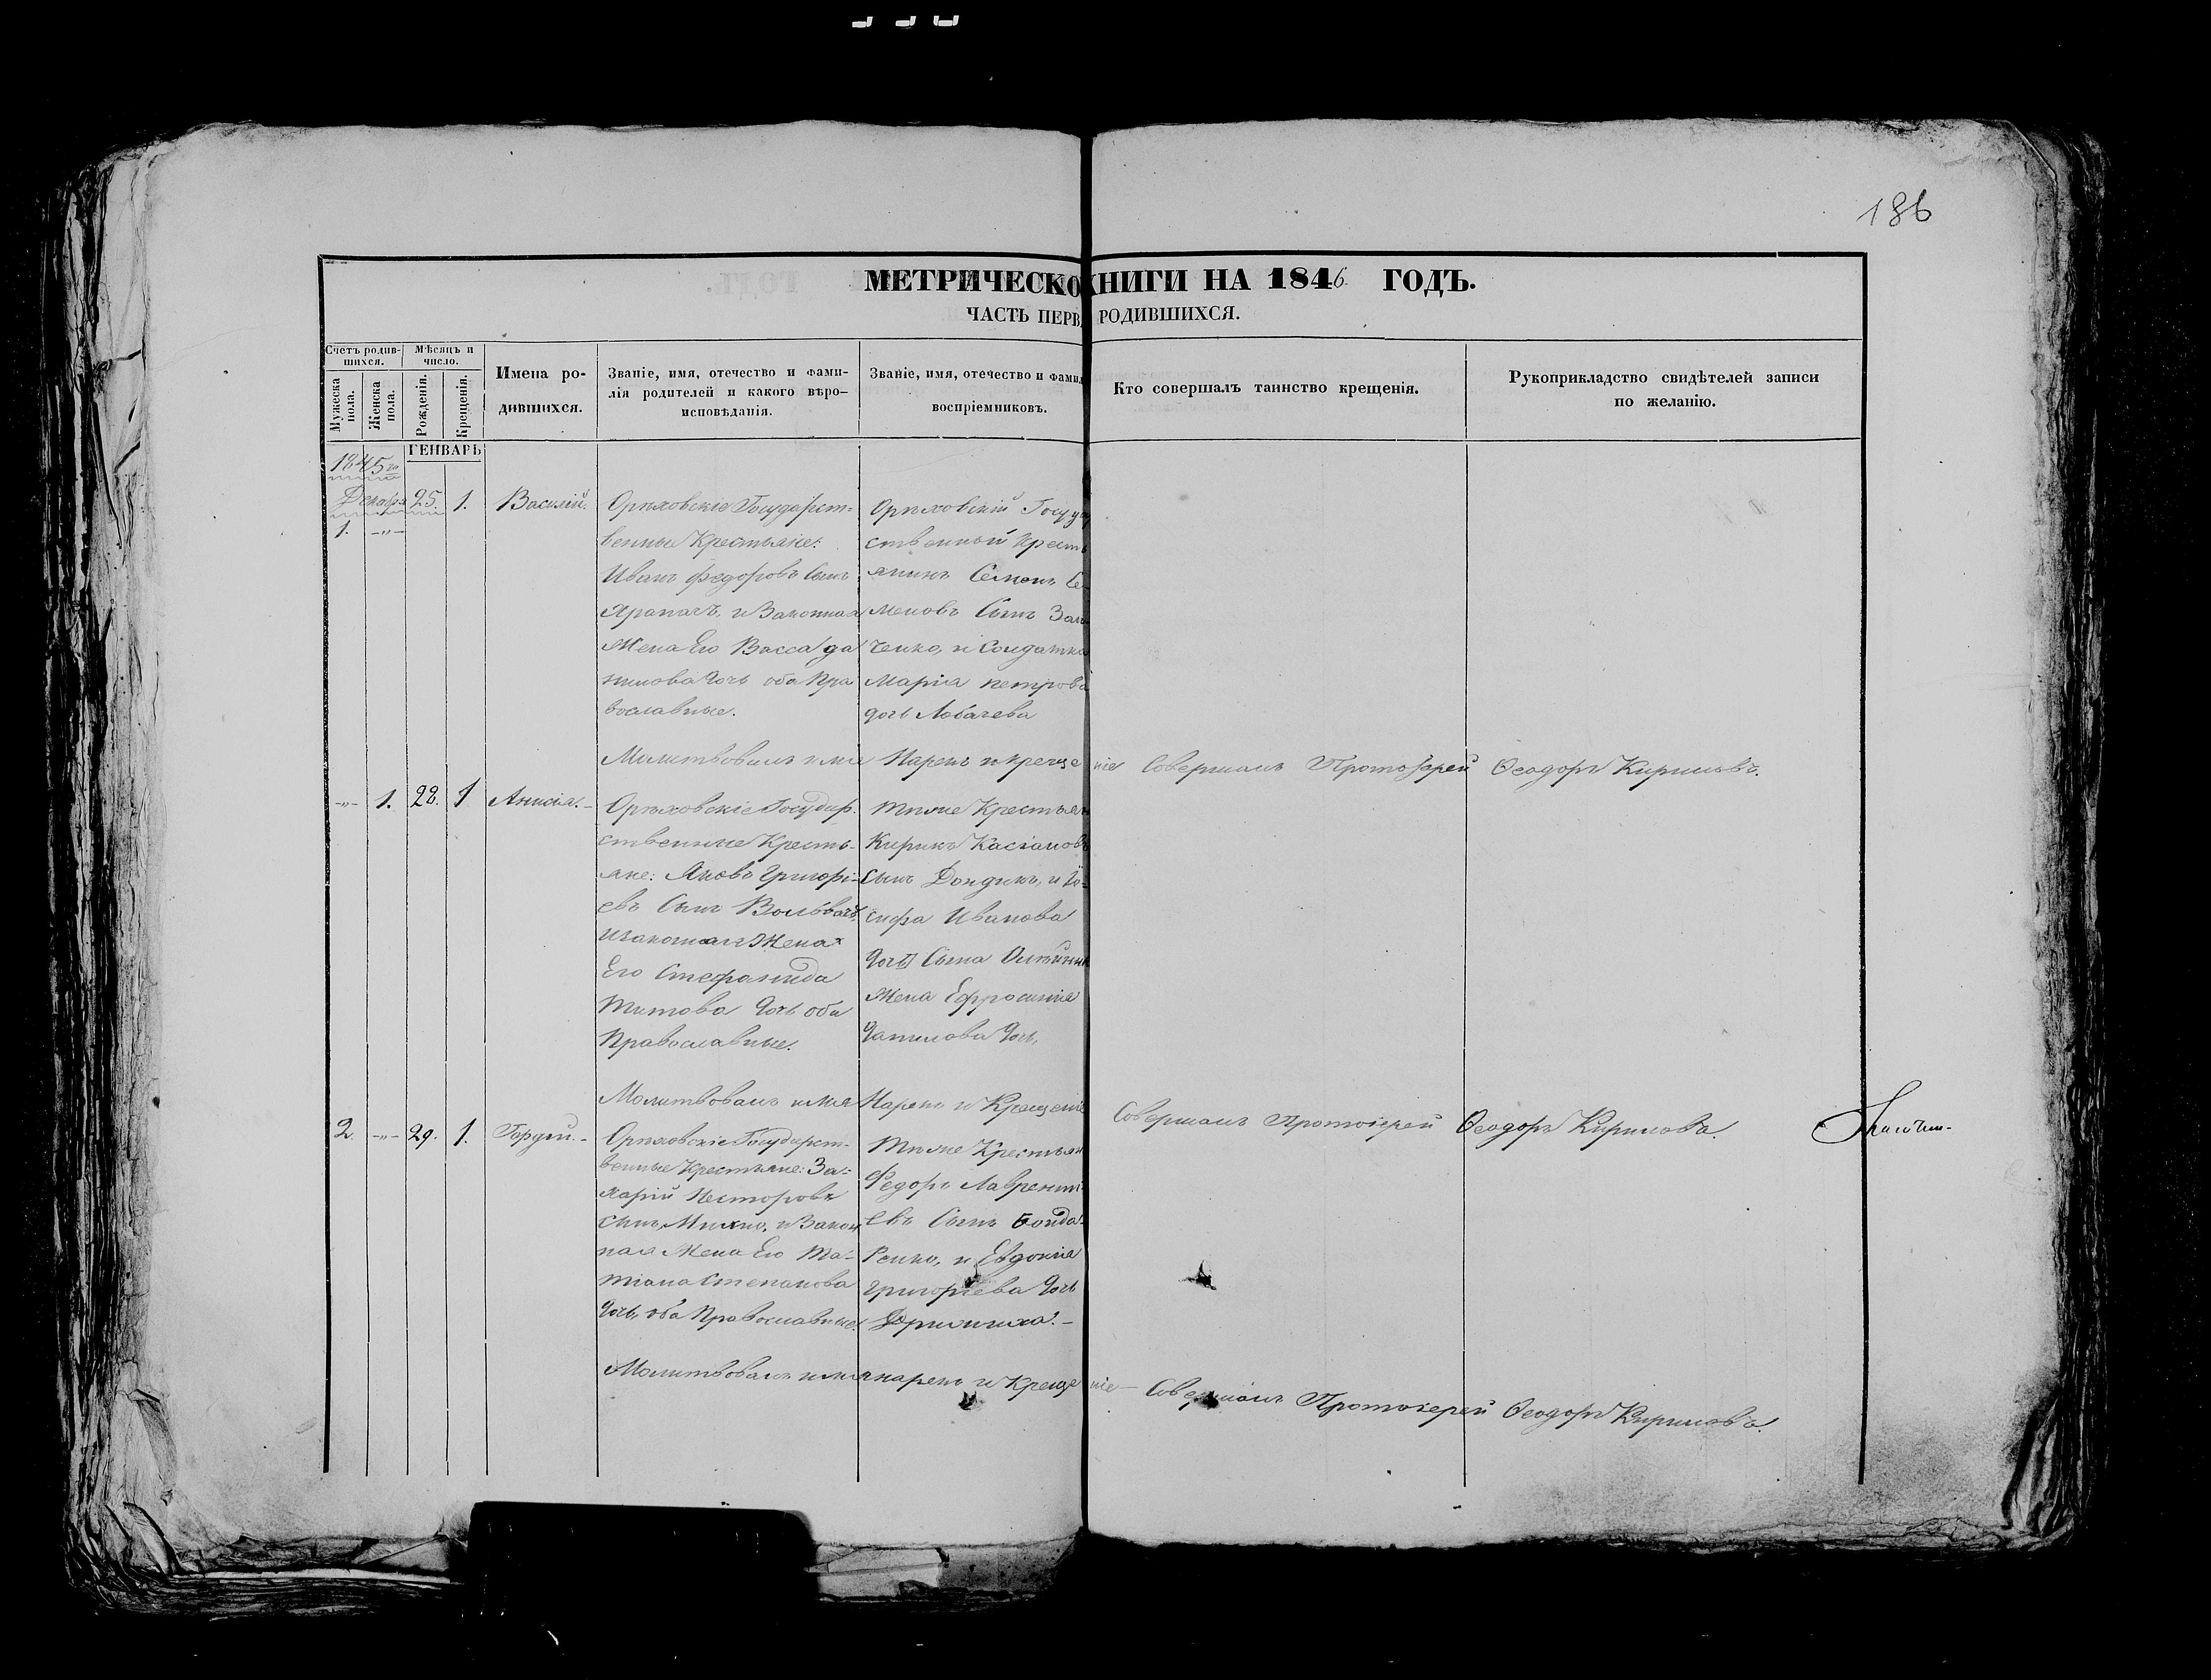 186
МЕТРИЧЕСКО КНИГИ НА 1846 ГОДЪ.
ЧАСТЬ ПЕРВ РОДИВШИХСЯ.
Счетъ родив-
шихся.
Мужеска пола.
Женска пола.
Мѣсяцъ и
число.
Рожденія.
Крещенія.
Имена ро-
дившихся.
Званіе, имя, отечество и фами-
лія родителей и какого вѣро-
исповѣданія.
Званіе, имя, отечество и фами
воспріемниковъ.
Кто совершалъ таинство крещенія.
Рукоприкладство свидѣтелей записи
по желанію.
ГЕНВАРЬ
1845го
Декабря 25. 1. Василій.
1. -"-
Орѣховскіе Государст-
венные Крестьяне:
Иванъ Федоровъ Сынъ
и Законная
Жена Его Васса Да
нилова Дочь оба Пра
вославные.
Орѣховскій Госуда
ственный Кресть
янинъ Семенъ Се-
меновъ Сынъ
ченко, и Солдатка
Марія Петрова
дочь Лобачева
Молитвовалъ имя Нарекъ и крещеніе Совершалъ Протоіерей Ѳеодоръ Кириловъ.
-"- 1. 28. 1 Анисія.-
Орѣховскіе Государ-
ственные Кресть-
яне: Яковъ Григорі-
евъ Сынъ Вольвачъ,
и законная Жена
Его Стефанида
Титова Дочь оба
Православные.
Тѣже Крестьян
Кирикъ Касіановъ
Сынъ Дондикъ, и Іо-
сифа Иванова
Сына
Жена Ефросинія
Данилова Дочь,
Молитвовалъ имя Нарекъ и Крещеніе Совершалъ Протоіерей Ѳеодоръ Кириловъ.
2. -"- 29. 1. Гордѣй.-
Орѣховскіе Государст-
венные Крестьяне: За-
харій Несторовъ
сынъ Михно, и Закон
ная Жена Его Та-
тіана Степанова
Дочь, оба Православные.
Тѣже Крестьян
Федоръ Лавренті-
евъ Сынъ Бонда-
ренко, и Евдокія
Григоріева Дочь
Молитвовалъ имя нарекъ и Крещеніе- Совершалъ Протоіерей Ѳеодоръ Кириловъ.